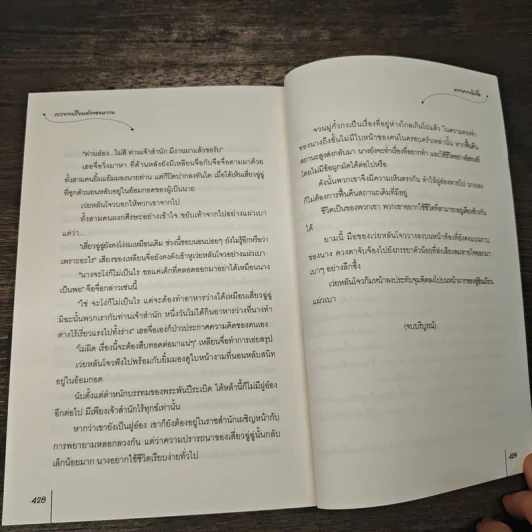 "ท่านอ๋อง...ไม่สิ ท่านเจ้าสำนัก มีงานมาแล้วขอรับ"
เธอจื่อวิ่งมาหา ที่ด้านหลังยังมีเหลียนจื่อกับจื่อจื่อตามมาด้วย
ทั้งสามคนยิ้มแย้มมองนายท่าน แต่ก็ปิดปากลงทันใด เมื่อได้เห็นเสี่ยวชู่ชู่
ที่ซุกตัวนอนหลับอยู่ในอ้อมกอดของผู้เป็นนาย
เว่ยหลันโจวบอกให้พวกเขาจากไป
ทั้งสามคนผงกศีรษะอย่างเข้าใจ ขยับเท้าจากไปอย่างแผ่วเบา
แต่ว่า...
"เสี่ยวชู่ชู่ยังคงโง่งมเหมือนเดิม ช่วงนี้ชอบนอนบ่อยๆ ยังไม่รู้อีกหรือว่า
เพราะอะไร" เสียงของเหลียนจื่อยังคงดังเข้าหูเว่ยหลันโจวอย่างแผ่วเบา
"นางจะโง่ก็ไม่เป็นไร ขอแค่เด็กที่คลอดออกมาอย่าได้เหมือนนาง
เป็นพอ" จื่อจื่อกล่าวเช่นนี้
"ใช่ จะโง่ก็ไม่เป็นไร แต่จะต้องทำอาหารวางได้เหมือนเสี่ยวชู่ชู่
มิฉะนั้นพวกเรากับท่านเจ้าสำนัก หนึ่งวันไม่ได้กินอาหารวางที่นางทำ
ต่างไร้เรี่ยวแรงไปทั้งร่าง" เธอจื่อเองก็ป่าวประกาศความคิดของตนเอง
"ไม่ผิด เรื่องนี้จะต้องสืบทอดต่อมาแน่ๆ" เหลียนจื่อทำการเอ่ยสรุป
เว่ยหลันโจวฟังไปพร้อมกับยิ้มมองดูใบหน้างามที่นอนหลับสนิท
อยู่ในอ้อมกอด
นับตั้งแต่ตำหนักบรรทมของพระพันปีระเบิด ใต้หล้านี้ก็ไม่มีฝูอ๋อง
อีกต่อไป มีเพียงเจ้าสำนักไร้ทุกข์เท่านั้น
หากว่าเขายังเป็นฝูอ๋อง เขาก็ยังต้องอยู่ในราชสำนักเผชิญหน้ากับ
การพยายามหลอกลวงกัน แต่ว่าความปรารถนาของเสี่ยวชู่ชู่นั้นกลับ
เล็กน้อยมาก นางอยากใช้ชีวิตเรียบง่ายทั่วไป
428
จวนฝูกั๋วกงเป็นเรื่องที่อยู่ห่างไกลเกินไปแล้ว ในความทรงจำ
ของนางถึงขั้นไม่มีใบหน้าของคนในครอบครัวเหล่านั้น หากฟื้นคืน
สถานะสูงส่งกลับมา นางยังจะทำเรื่องที่อยากทำ และใช้ชีวิตอย่างอิสรเสรี
โดยไม่มีข้อผูกมัดได้ต่อไปหรือ
ดังนั้นพวกเขาจึงมีความเห็นตรงกัน ทำให้ฝูอ๋องหายไป นางเอง
ก็ไม่ต้องการฟื้นคืนสถานะเดิมที่มีอยู่
ชีวิตเป็นของพวกเขา พวกเขาอยากใช้ชีวิตที่สามารถอยู่เคียงข้างกัน
ได้
ยามนี้ มือของเว่ยหลันโจววางลงบนหน้าท้องที่ยังคงแบนราบ
ของนาง ดวงตาจับจ้องไปยังภรรยาตัวน้อยที่ส่งเสียงลมหายใจออกมา
เบาๆ อย่างลึกซึ้ง
เว่ยหลันโจวก้มหน้าลงประทับจุมพิตลงไปบนหน้าผาก
แผ่วเบา
(จบบริบูรณ์)
429